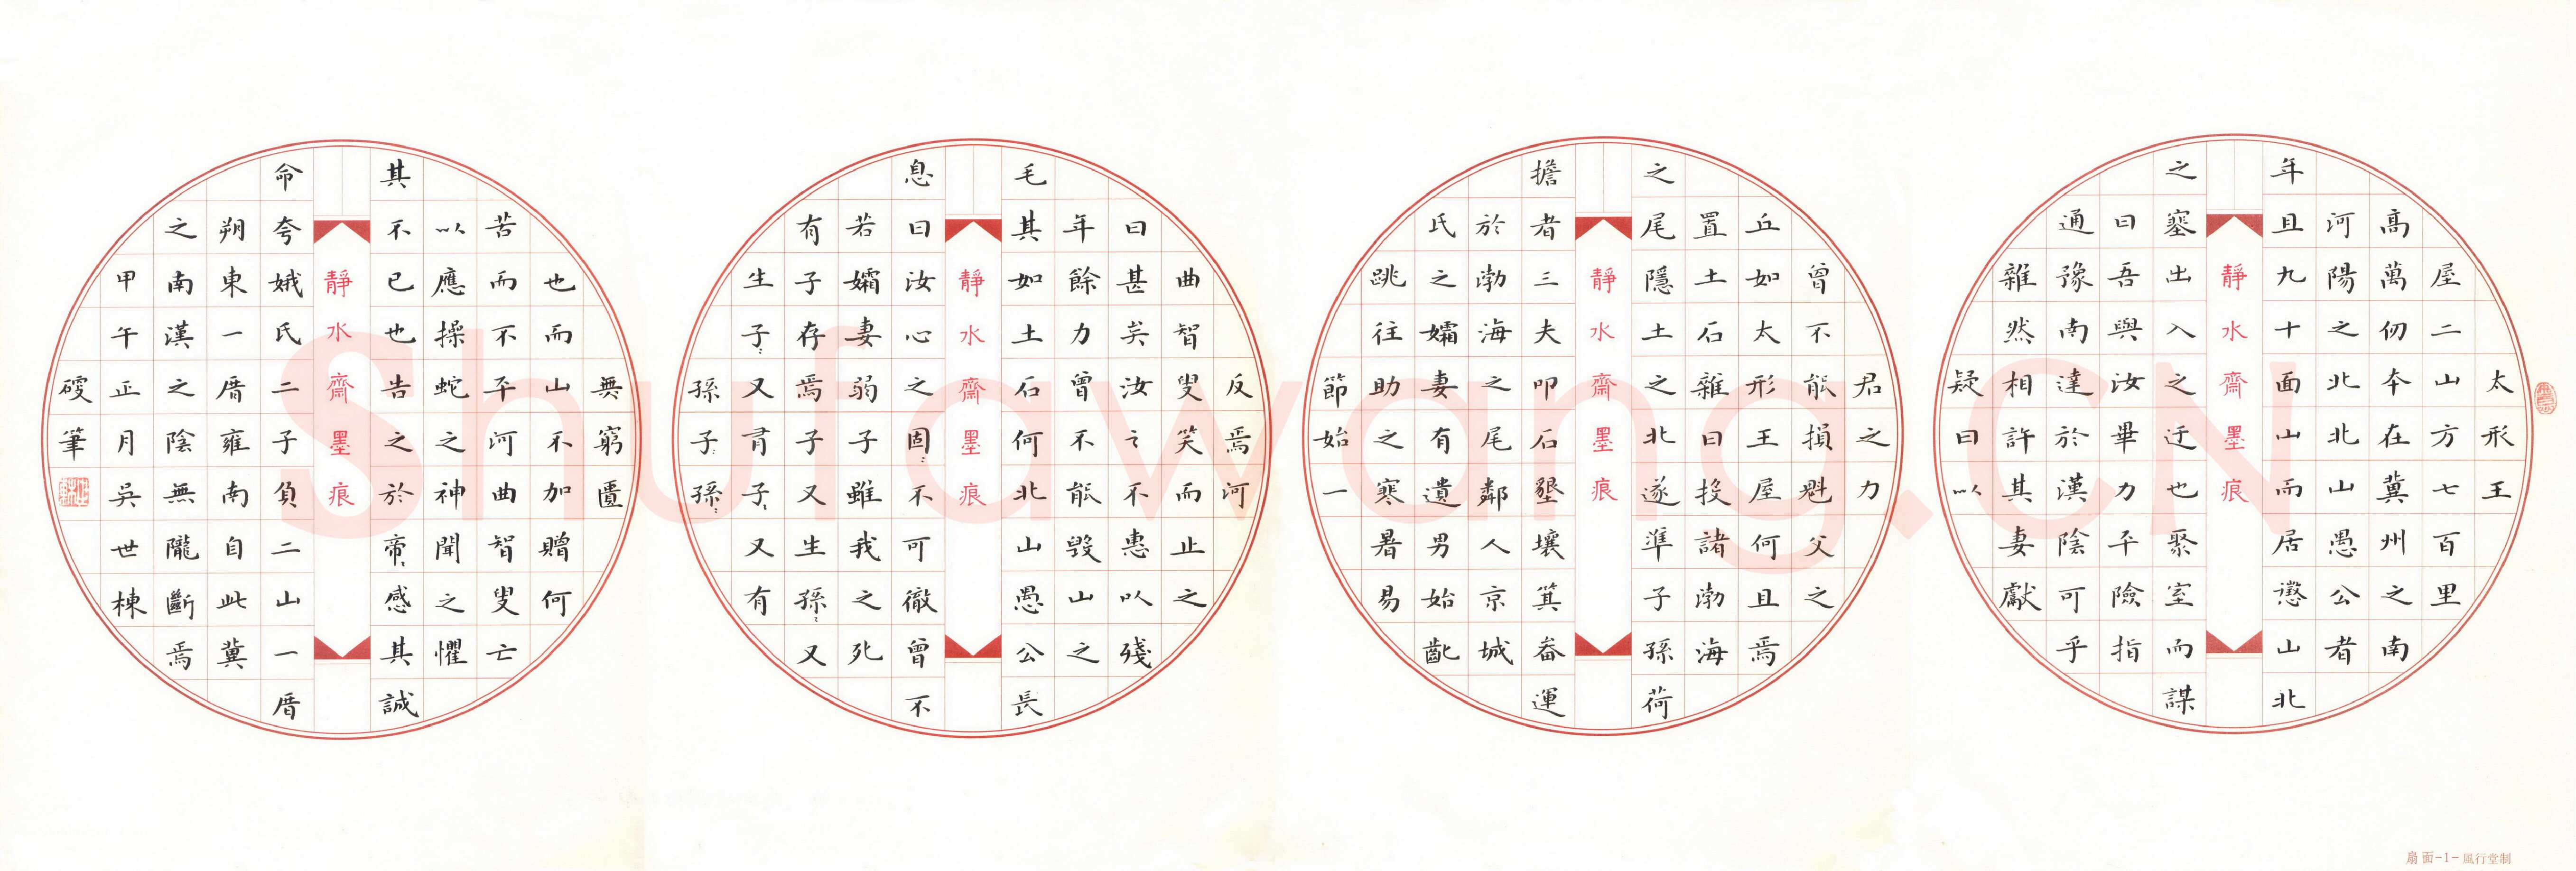 太形王
屋二山方七百里
高萬仞本在冀州之南
河陽之北北山愚公者
年且九十面山而居懲山北
靜水齋墨痕
之塞出入之迂也聚室而謀
曰吾與汝畢力平險指
通豫南達於漢陰可乎
雜然相許其妻獻
疑曰以
君之力
曾不能損魁父之
丘如太形王屋何且焉
置土石雜曰投諸渤海
之尾隱土之北遂準子孫荷
靜水齋墨痕
擔者三夫叩石墾壤箕畚運
於渤海之尾鄰人京城
氏之孀妻有遺男始齔
跳往助之寒暑易
節始一
反焉河
曲智叟笑而止之
曰甚矣汝之不惠以殘
年餘力曾不能毀山之
毛其如土石何北山愚公長
靜水齋墨痕
息曰汝心之固〻不可徹曾不
若孀妻弱子雖我之死
有子存焉子又生孫〻又
生子〻又有子〻又有
孫子〻孫〻
無窮匱
也而山不加贈何
苦而不平河曲智叟亡
以應操蛇之神聞之懼
其不已也告之於帝〻感其誠
靜水齋墨痕
命夸娥氏二子負二山一厝
朔東一厝雍南自此冀
之南漢之陰無隴斷焉
甲午正月吳世棟
硬筆
扇面-1-風行堂制
Shufawang.CN